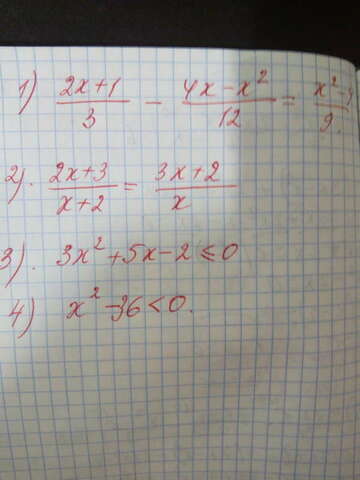 1) (2x+1)/3 - (4x-x²)/12 = (x²-4)/9.
2). (2x+3)/(x+2) = (3x+2)/x
3). 3x²+5x-2≤0
4) x²-36<0.